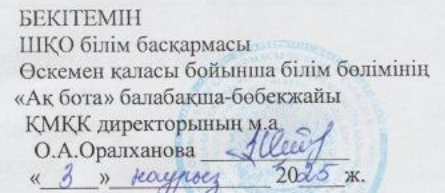 БЕКІТЕМІН
ШҚО білім басқармасы
Өскемен қаласы бойынша білім бөлімінің
«Ақ бота» балабақша-бөбекжайы
ҚМҚК директорының м.а
О.А.Оралханова
« 3 » наурыз 2025 ж.